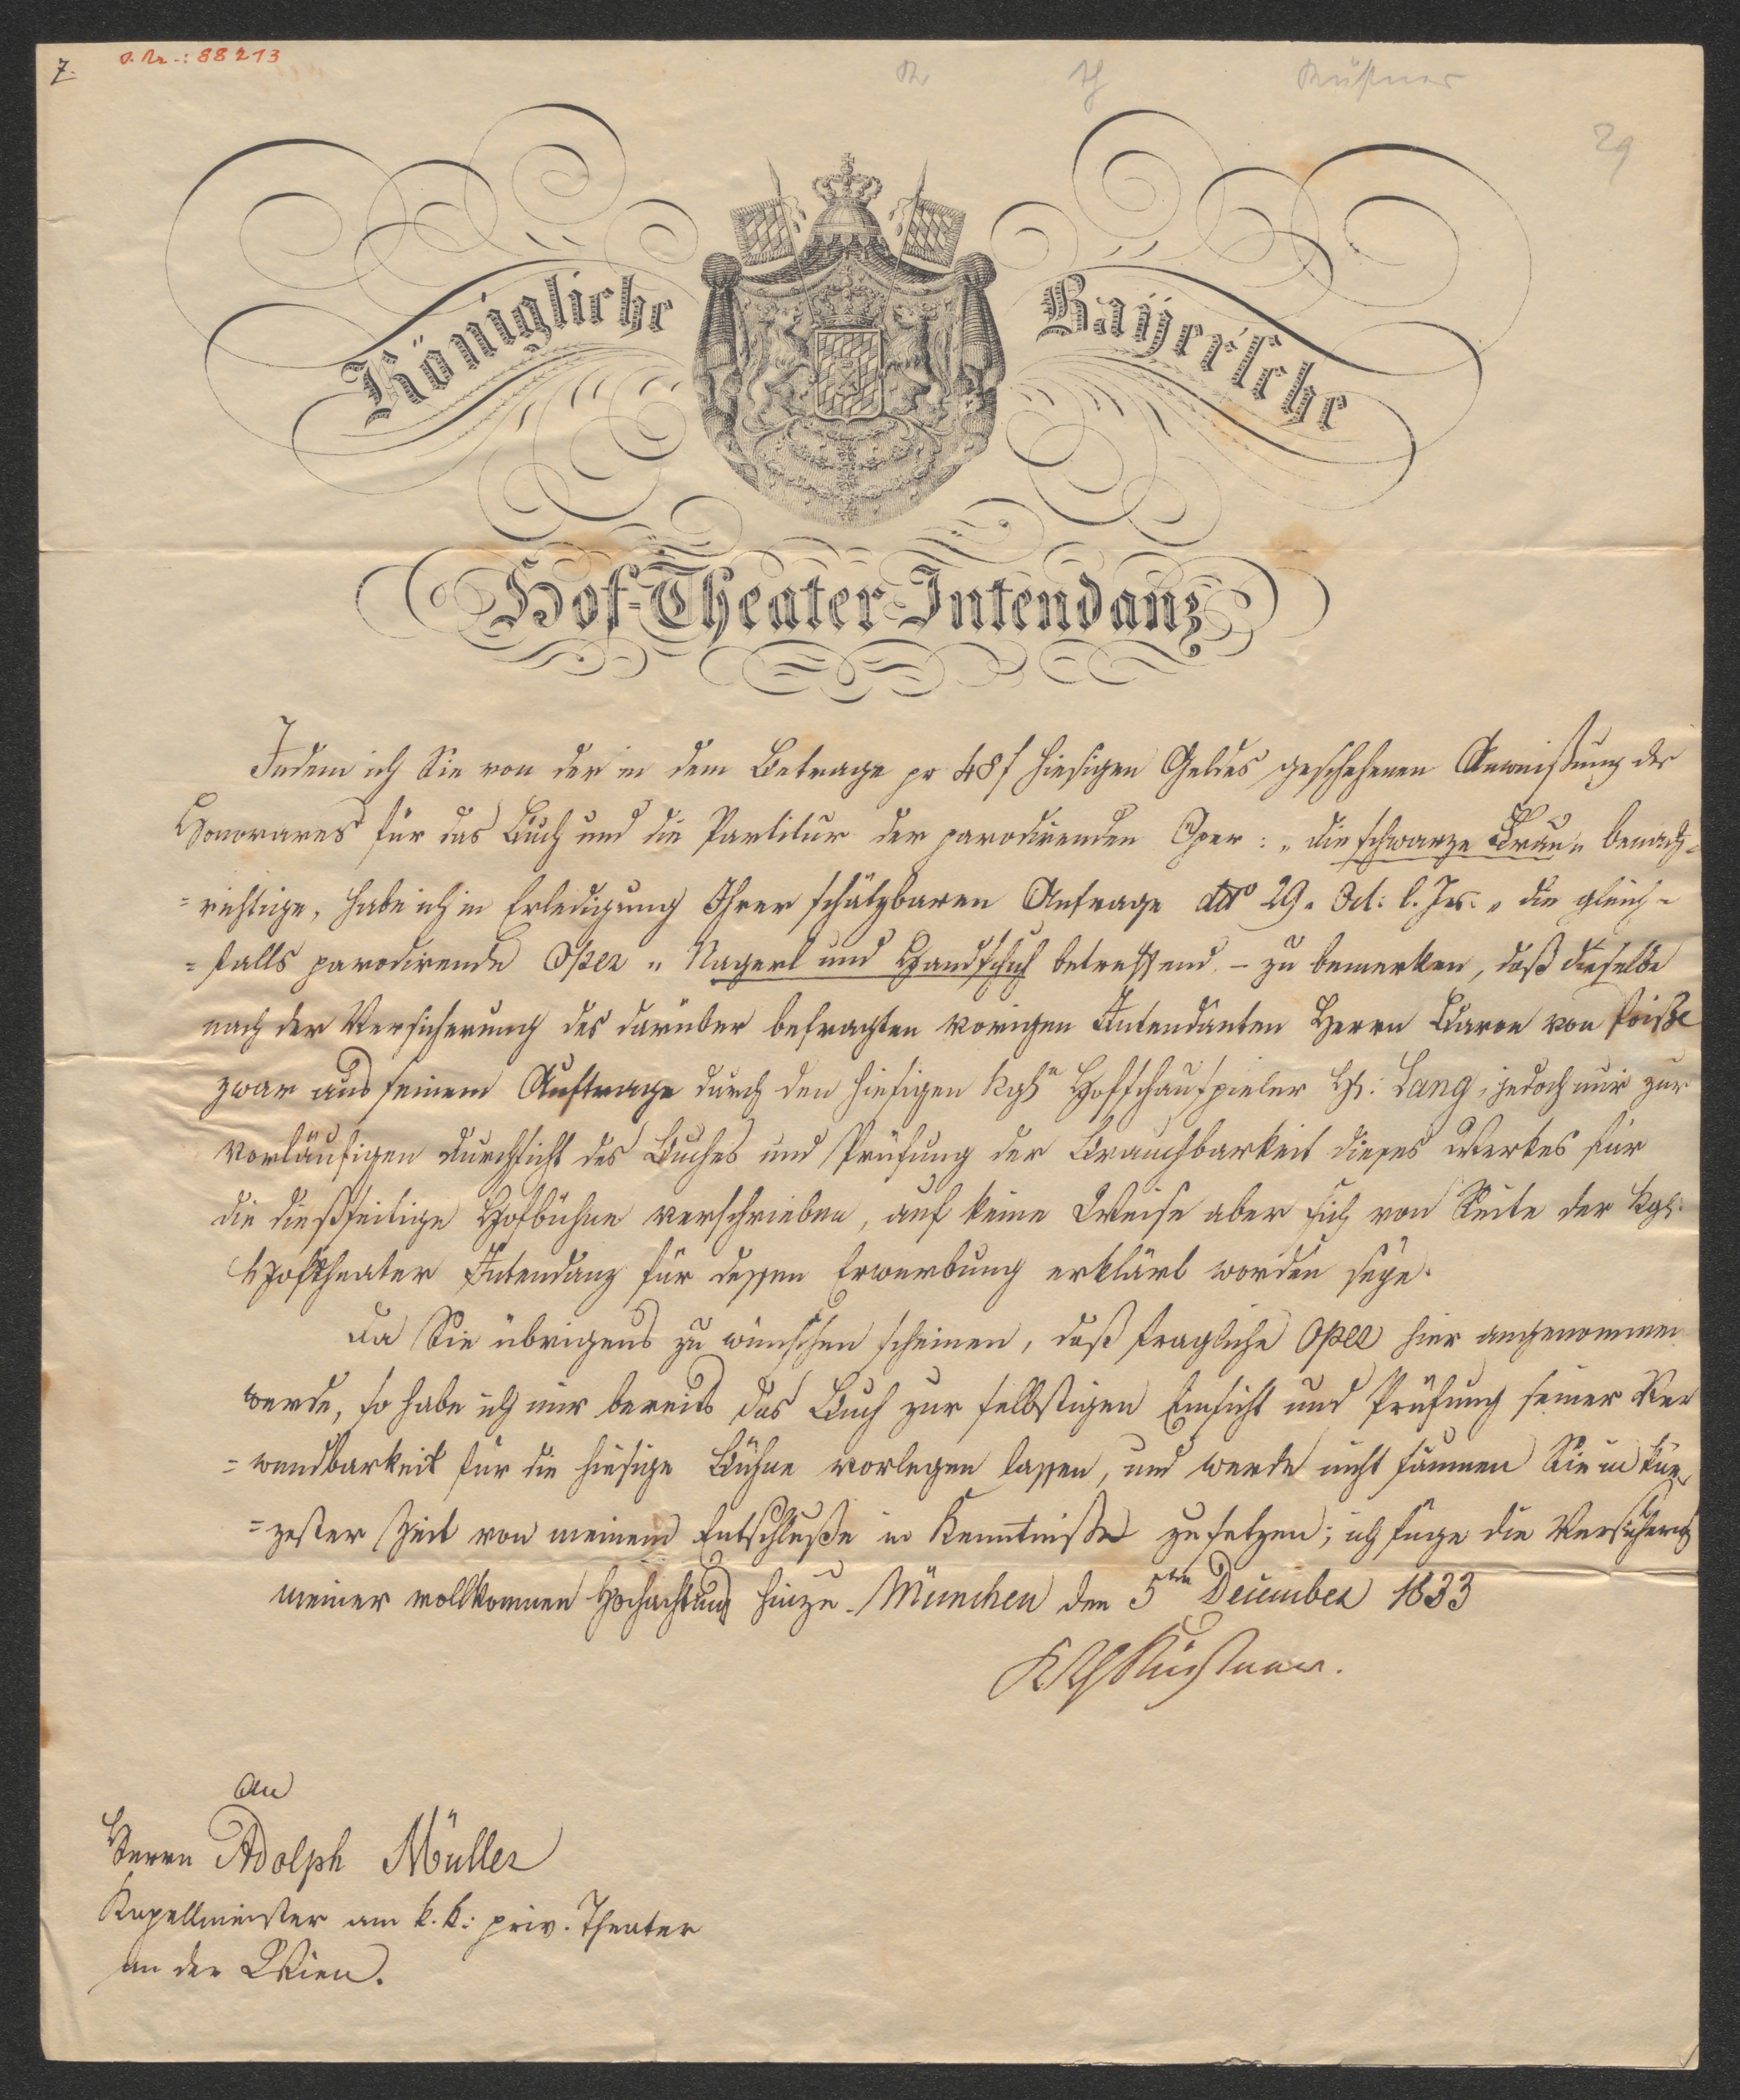 7.
J. Nr.: 88213
K.
Th
Küstner
29
Königliche Bayerische
Hof-Theater-Intendanz
Indem ich Sie von der in dem Betrage pr 48 f hiesigen Geldes geschehenen Anweißung des
Honorares für das Buch und die Partitur der parodirenden Oper: „die schwarze Frau„ benach-
=richtige, habe ich in Erledigung Ihrer schätzbaren Anfrage dtto 29. Oct: l. Jrs: „ die gleich-
=falls parodirende Oper „ Nagerl und Handschuh betreffend. – zu bemerken, daß dieselbe
nach der Versicherung des darüber befragten vorigen Intendanten Herrn Baron von Poißl
zwar aus seinem Auftrage durch den hiesigen kgln Hofschauspieler H: Lang, jedoch nur zur
vorläufigen Durchsicht des Buches und Prüfung der Brauchbarkeit dieses Werkes für
die dießseitige Hofbühne verschrieben, auf keine Weise aber sich von Seite der kgl:
Hoftheater Intendanz für dessen Erwerbung erklärt worden seye.
Da Sie übrigens zu wünschen scheinen, daß fragliche Oper hier angenommen
werde, so habe ich mir bereits das Buch zur selbstigen Einsicht und Prüfung seiner Ver
=wendbarkeit für die hiesige Bühne vorlegen lassen, und werde nicht säumen Sie in kür
=zester Zeit von meinem Entschluße in Kenntniße zu setzen; ich füge die Versicherung
meiner vollkommen Hochachtung hinzu. München den 5ten December 1833
K Th Küstner.
An
Herrn Adolph Müller
Kapellmeister am k. k: priv. Theater
an der Wien.